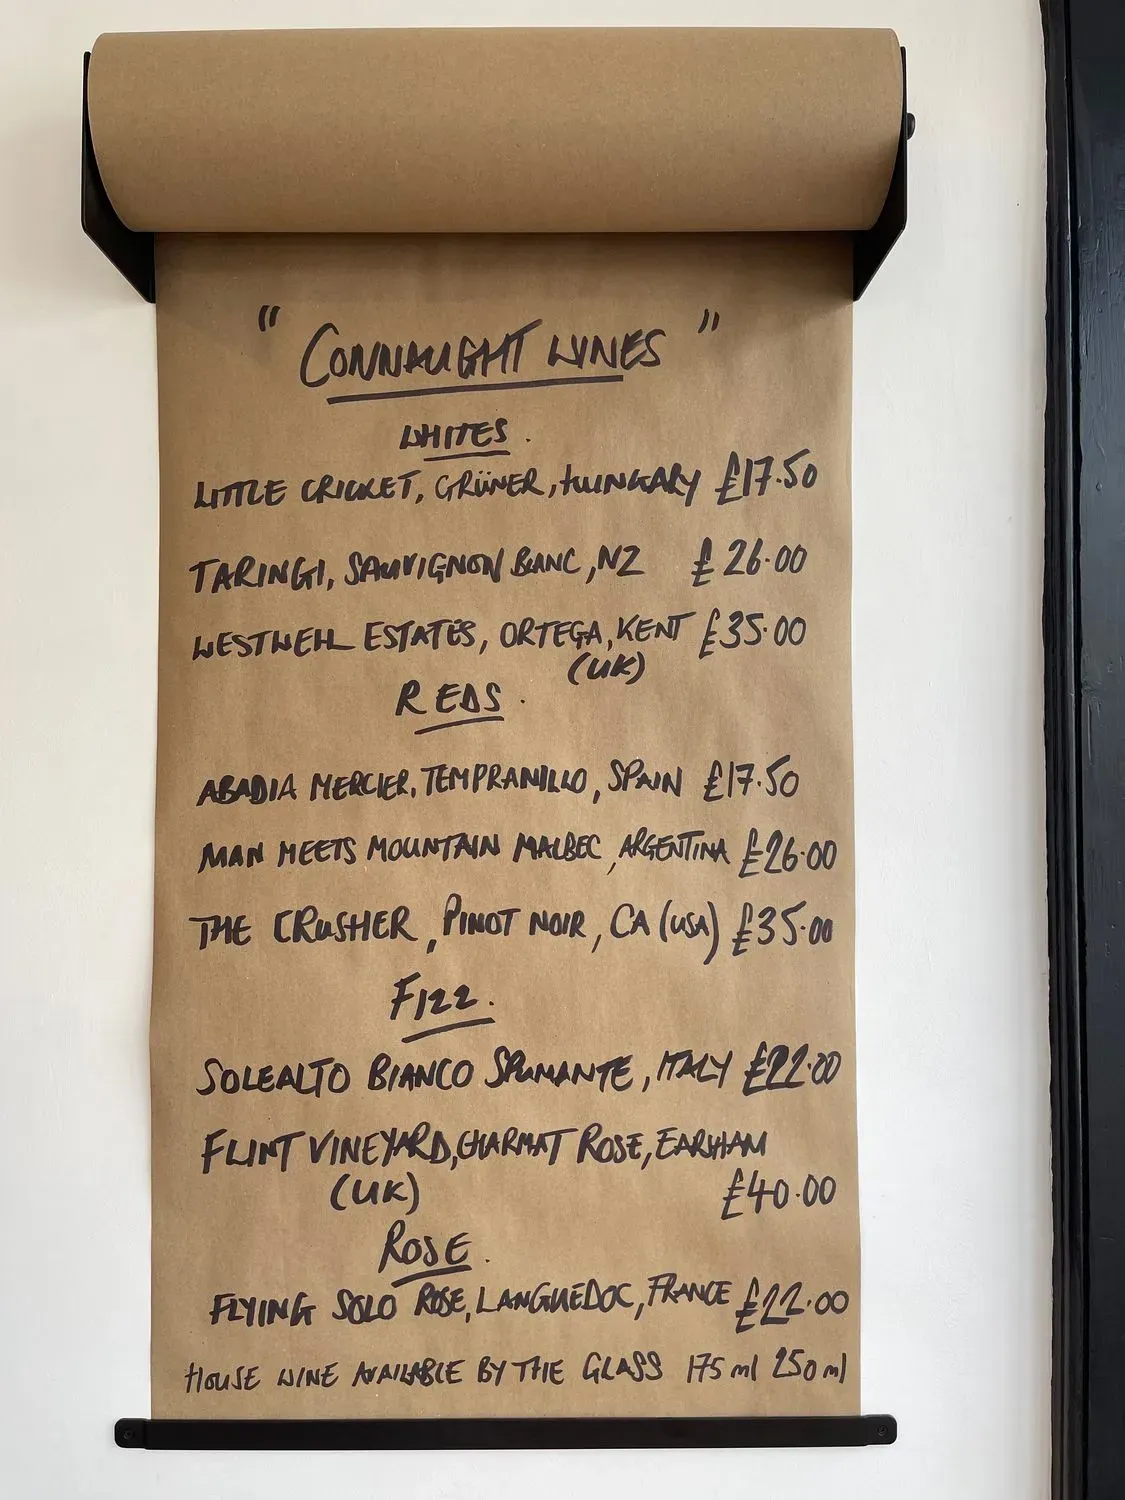 " CONNAUGHT WINES "
WHITES.
LITTLE CRICKET, GRÜNER, HUNGARY £17.50
TARINGI, SAUVIGNON BLANC, NZ £26.00
WESTWELL ESTATES, ORTEGA, KENT £35.00
(UK)
REDS.
ABADIA MERCIER, TEMPRANILLO, SPAIN £17.50
MAN MEETS MOUNTAIN MALBEC, ARGENTINA £26.00
THE CRUSHER, PINOT NOIR, CA (USA) £35.00
FIZZ.
SOLEALTO BIANCO SPUMANTE, ITALY £22.00
FLINT VINEYARD, CHARMAT ROSE, EARSHAM
(UK) £40.00
ROSE.
FLYING SOLO ROSE, LANGUEDOC, FRANCE £22.00
HOUSE WINE AVAILABLE BY THE GLASS 175 ml 250 ml